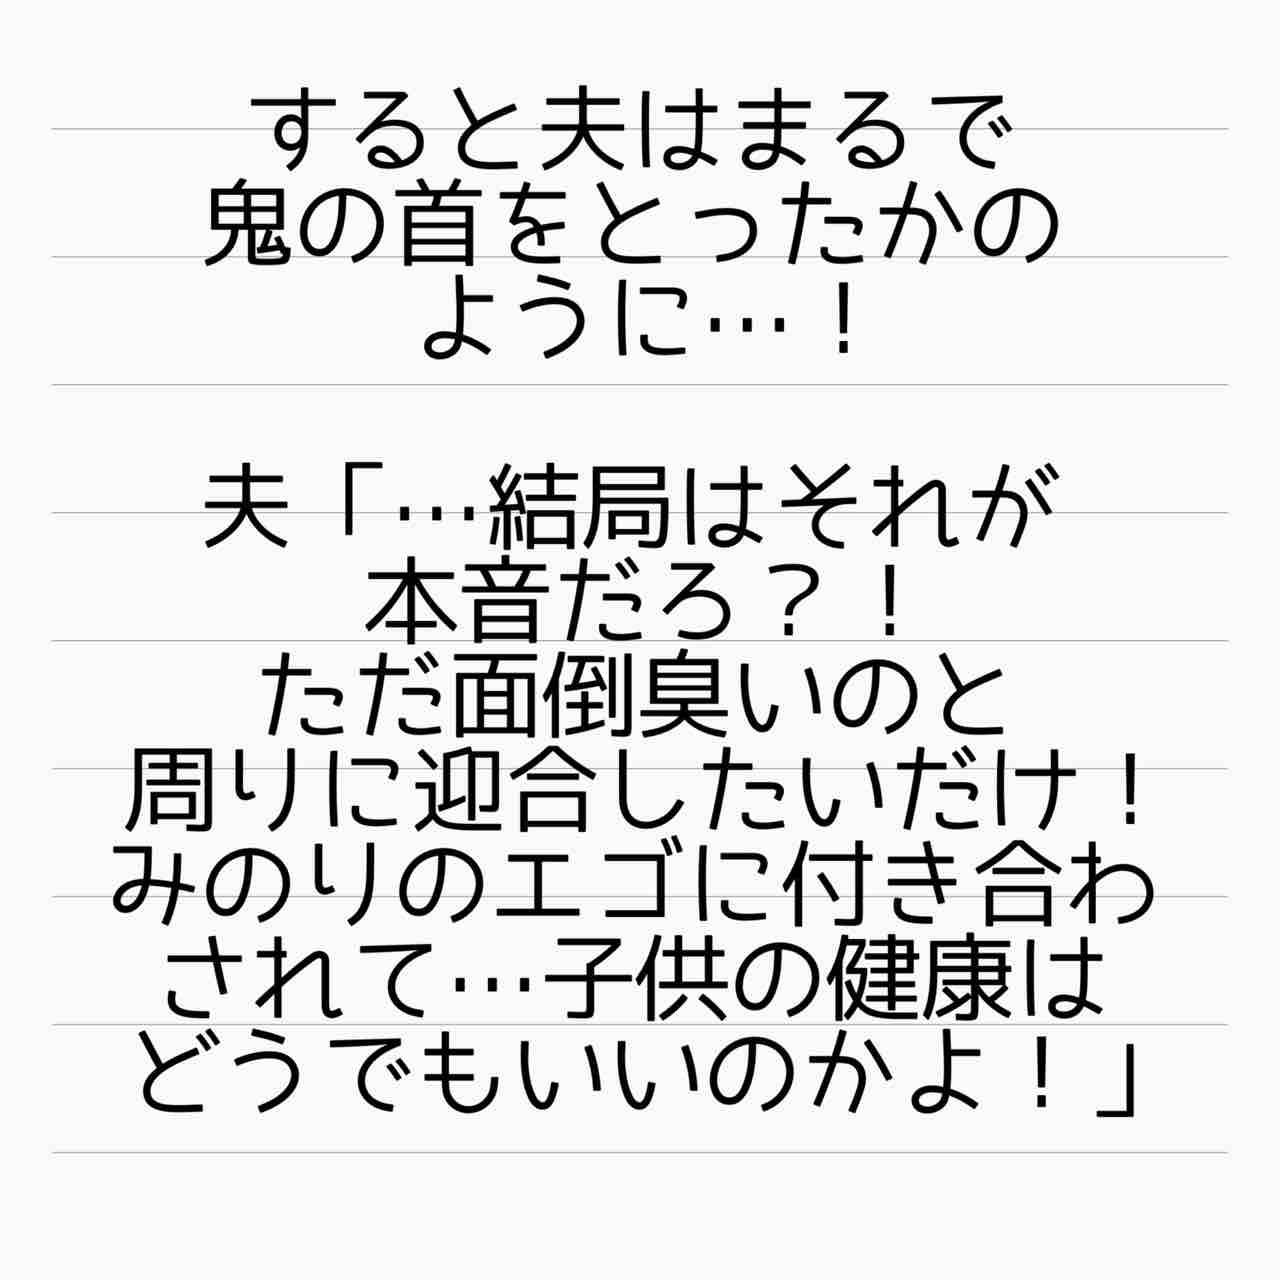 すると夫はまるで
鬼の首をとったかの
ように…！
夫「…結局はそれが
本音だろ？！
ただ面倒臭いのと
周りに迎合したいだけ！
みのりのエゴに付き合わ
されて…子供の健康は
どうでもいいのかよ！」